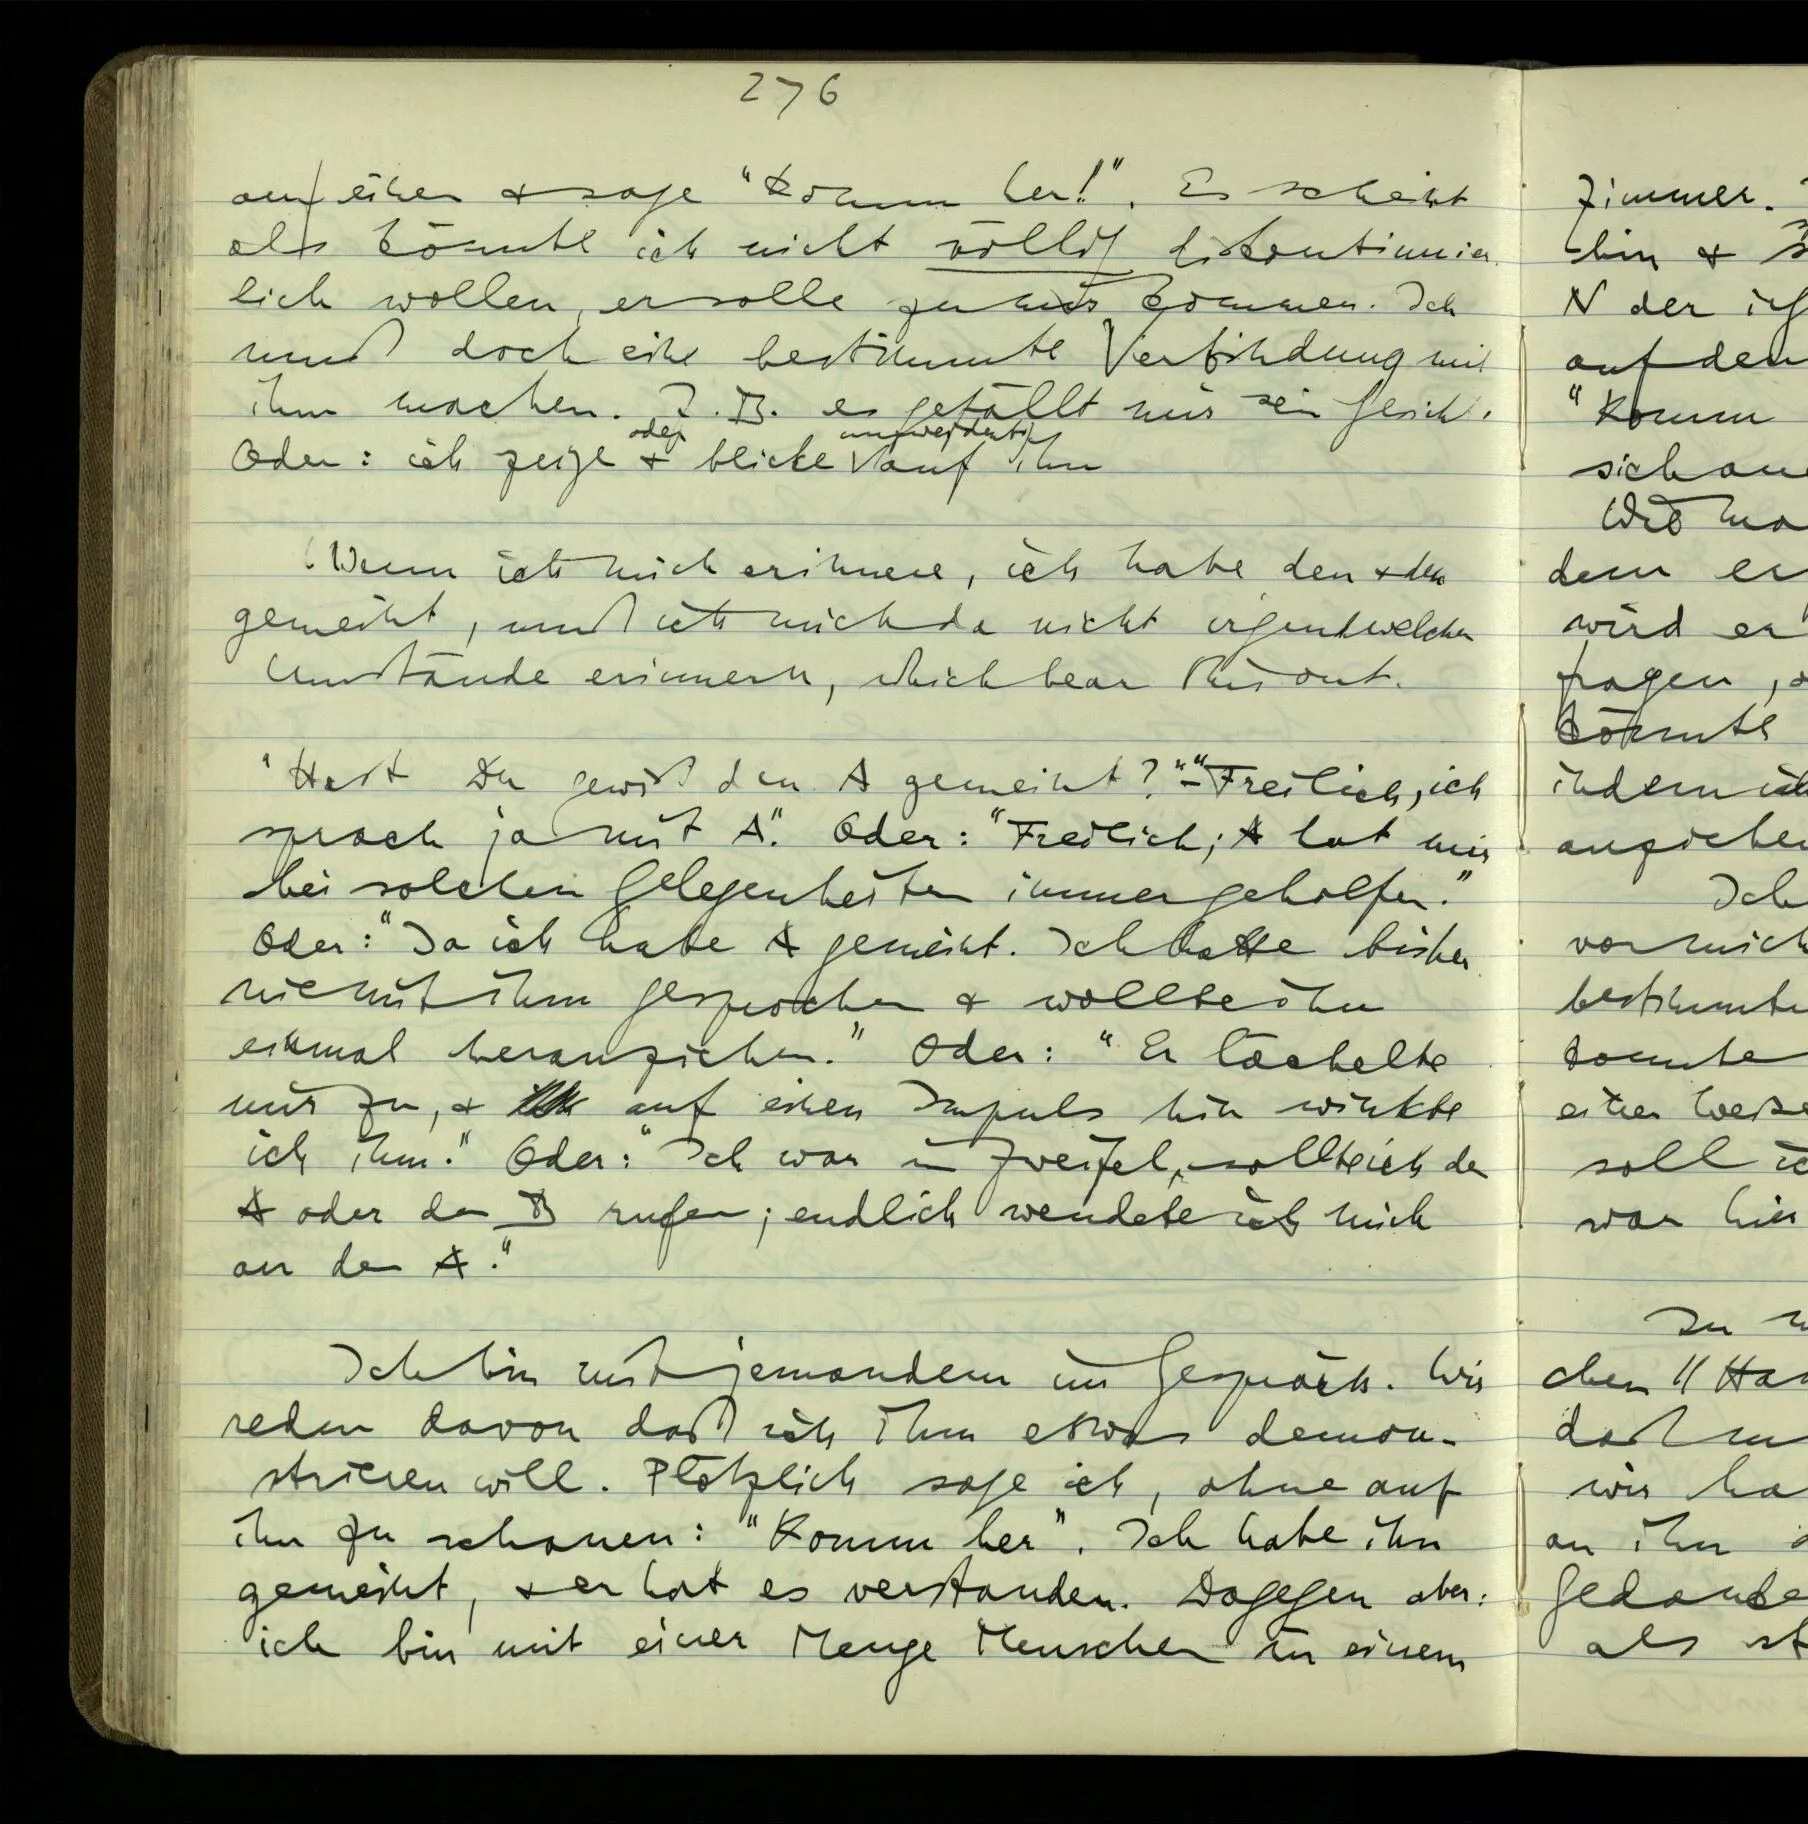 276
auf einen & sage "Komm her!". Es scheint
als könnte ich nicht völlig diskontinuier-
lich wollen, er solle zu mir kommen. Ich
muß doch eine bestimmte Verbindung mit
ihm machen. Z.B. es gefällt mir sein Gesicht.
oder unzweideutig
Oder: ich zeige & blicke auf ihn
Wenn ich mich erinnere, ich habe den & den
gemeint, muß ich mich da nicht irgendwelcher
Umstände erinnern, which bear this out.
"Hast Du gewiß den A gemeint?" – "Freilich, ich
sprach ja mit A". Oder: "Freilich; A hat mir
bei solchen Gelegenheiten immer geholfen."
Oder: "Ja ich habe A gemeint. Ich hatte bisher
nie mit ihm gesprochen & wollte ihn
einmal heranziehen." Oder: "Er lächelte
mir zu, & auf einen Impuls hin winkte
ich ihm." Oder: "Ich war in Zweifel, sollte ich den
A oder den B rufen; endlich wendete ich mich
an den A."
Ich bin mit jemandem im Gespräch. Wir
reden davon daß ich ihm etwas demon-
strieren will. Plötzlich sage ich, ohne auf
ihn zu schauen: "Komm her". Ich habe ihn
gemeint, & er hat es verstanden. Dagegen aber:
ich bin mit einer Menge Menschen in einem
Zimmer.
hin &
N der
auf den
"Komm
sich
dem er
wird er
fragen,
könnte
indem ich
anziehen
Ich
vor mich
bestimmte
konnte
einer Weise
soll
war hier
Zu
chen
daß
wir
an ihn
Gedanke
als